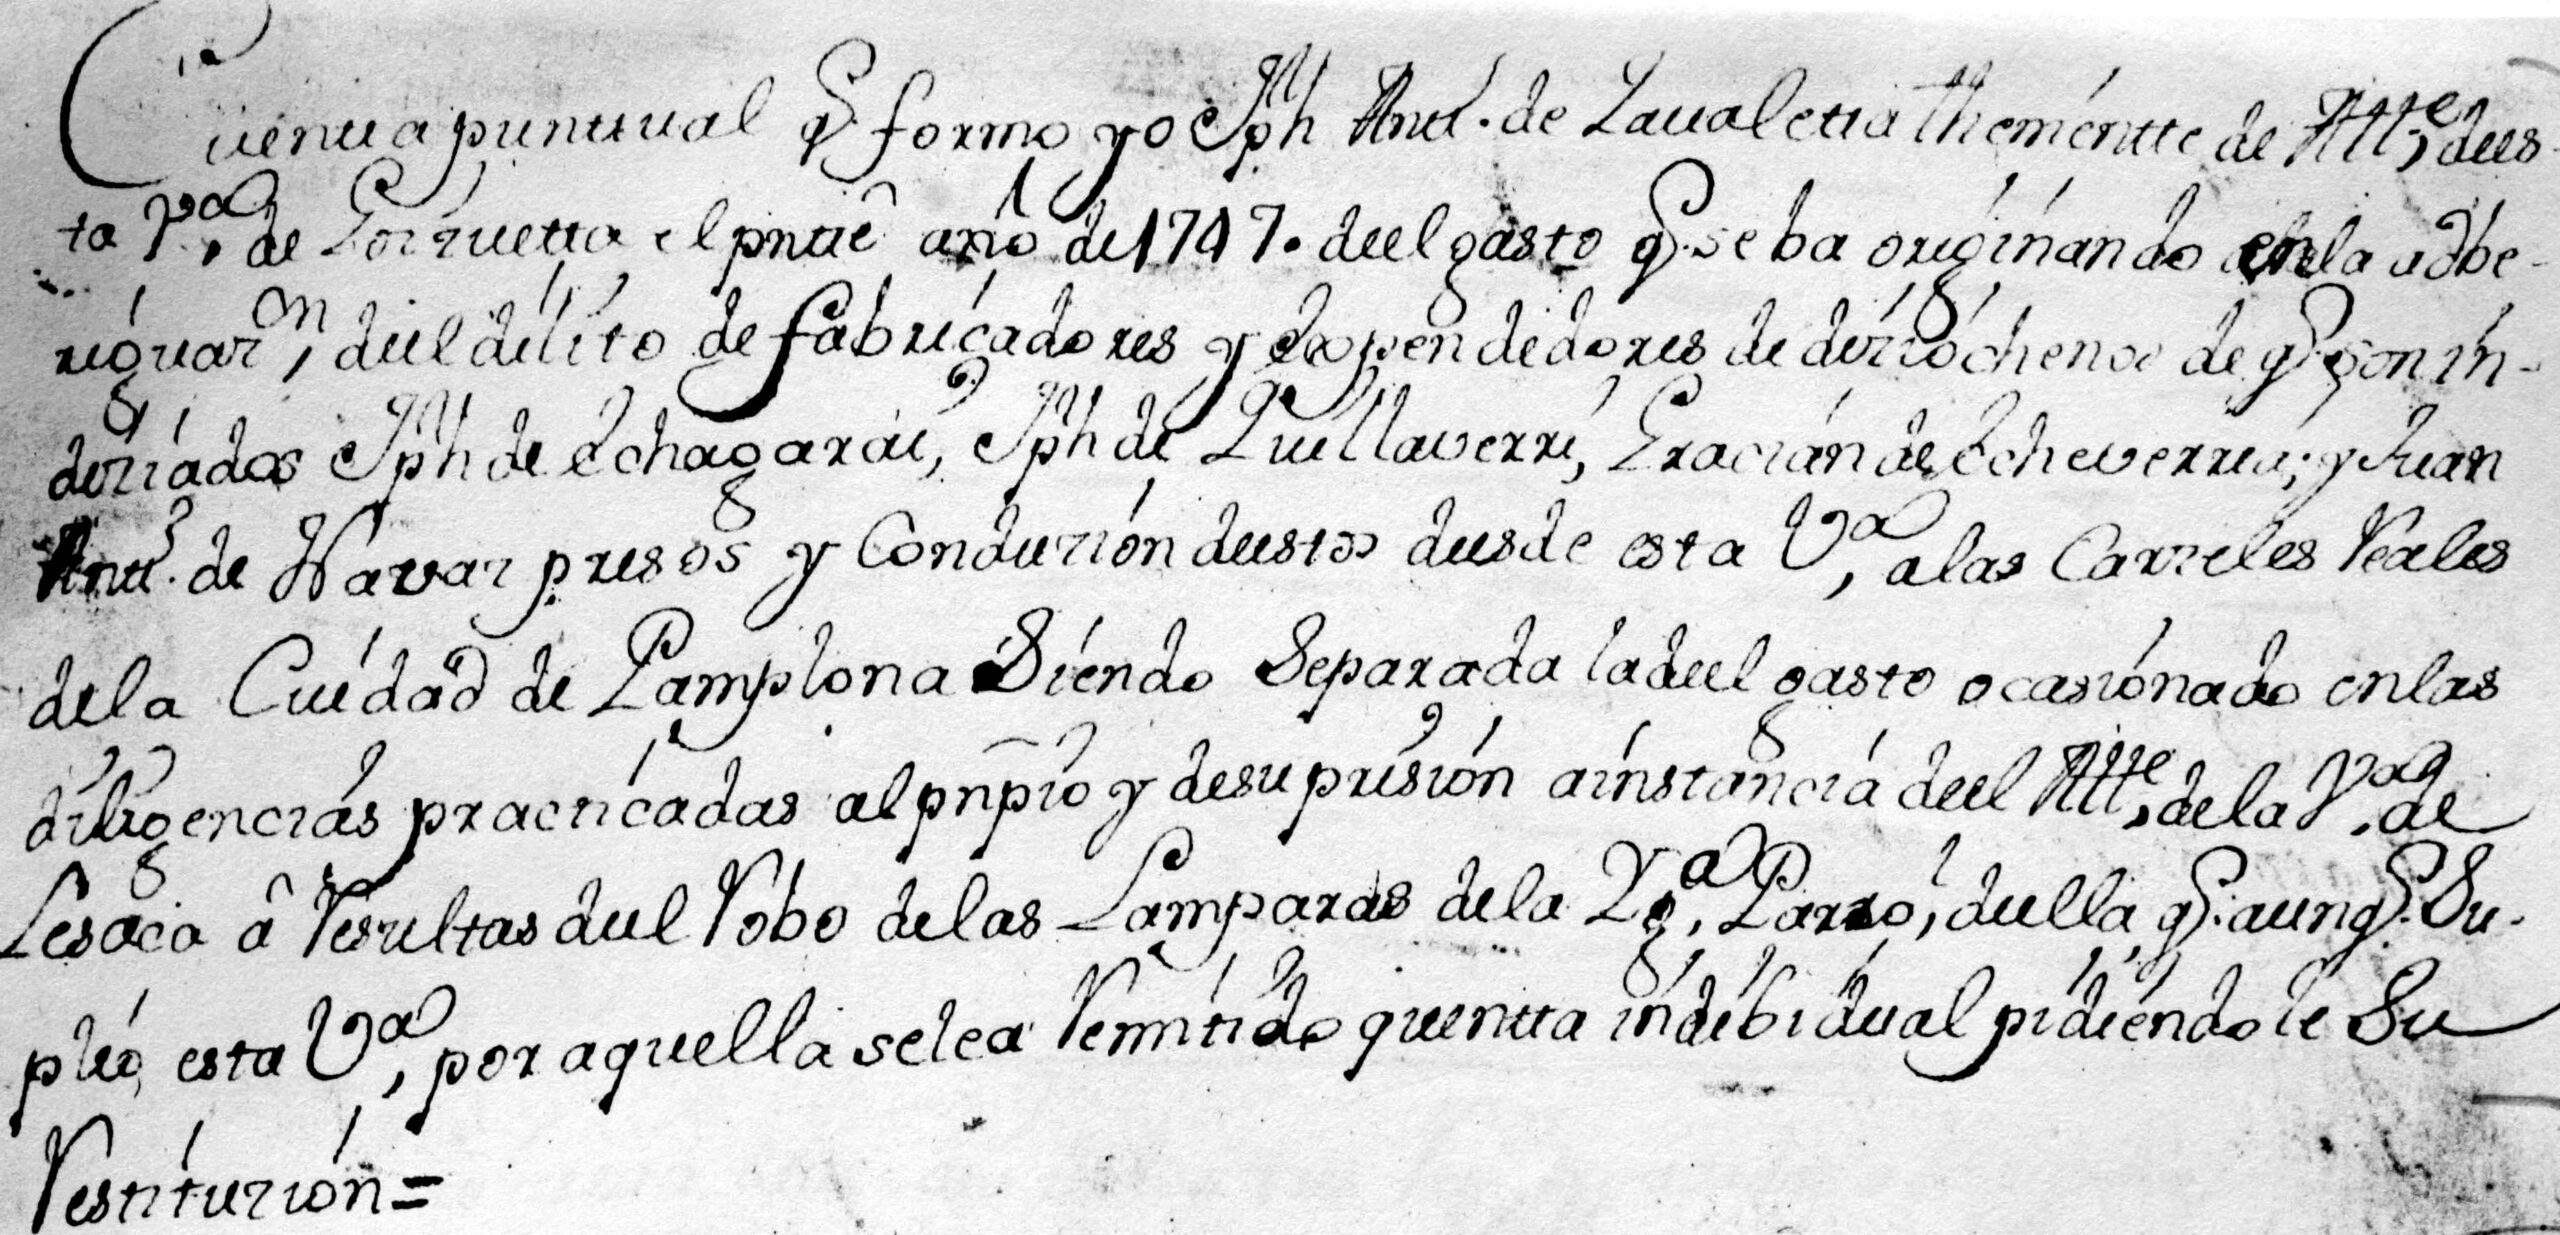 Cuentta punttual q.e formo yo Jph Antt.o de Lavaletta thenientte de Att.e dees-
ta V.a de Gorrietta el pntte año de 1747. deel gasto q.e se ba originando en la adbe-
riguaz.on deel delito de fabricadores y expendedores de de ochenos de q.e son in-
diziados Jph de Echagarai, Jph de Guellaverri, Gracian de Echeverria, y Juan
Antt.o de Navaz presos y Conduzion deestos deesde esta V.a a las Carzeles Reales
de la Ciudad de Pamplona Siendo Separada la deel gasto ocasionado en las
diligencias practicadas al pnpio y de su prision a instancia deel Att.e de la V.a de
Lesaca â Resultas deel Robo de las Lamparas de la Yg.a Parro,l deella q.e aunq.e Su-
plio esta V.a, por aquella se le a Remitido quentta indibidual pidiendole Su
Restituzion=